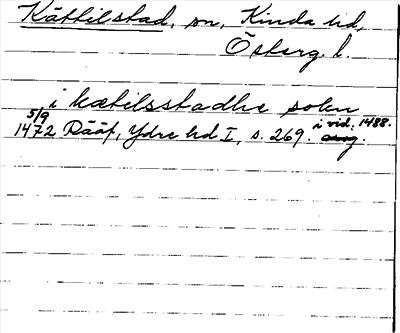 Kättilstad, sn, Kinda hd,
Österg. l.
i kætilsstadhe sokn
5/9
1472 Rääf, Ydre hd I, s. 269. i vid. 1488.
orig.